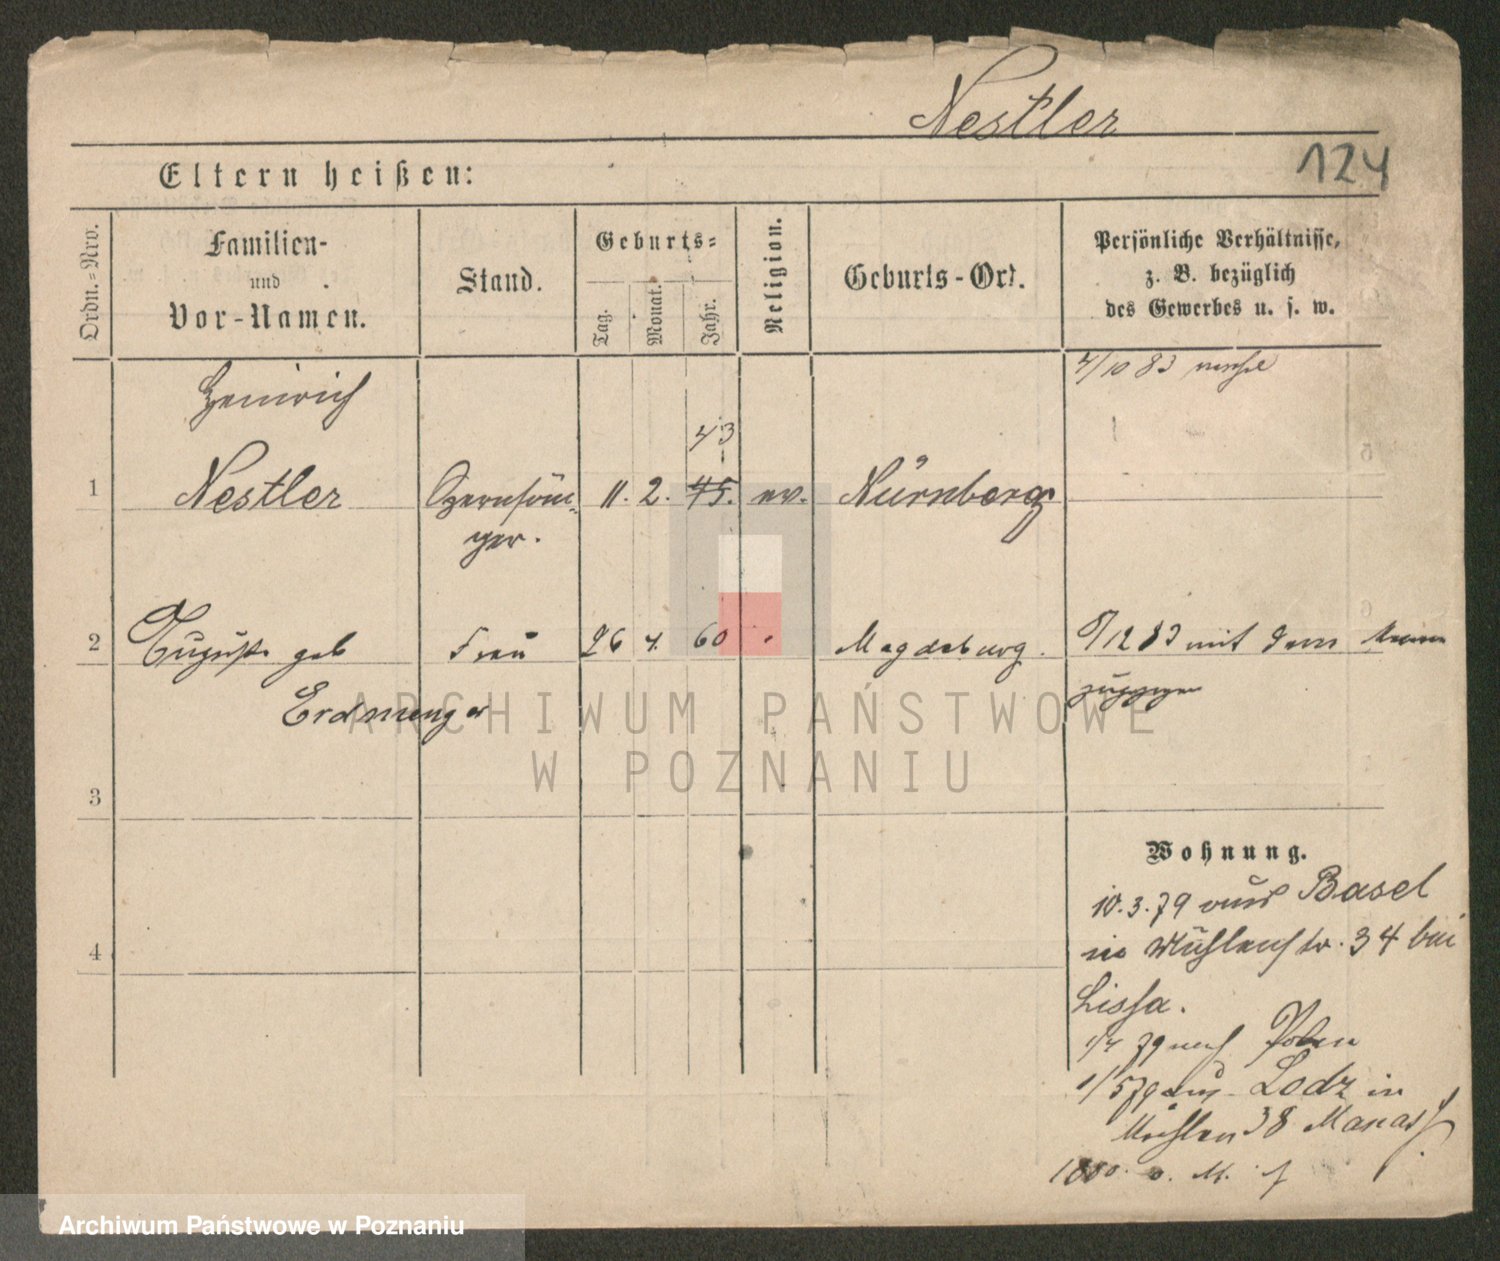 Nestler
124
Eltern heißen:
Ordn.-Nro.
Familien-
und
Vor-Namen.
Stand.
Geburts-
Tag.
Monat.
Jahr.
Religion.
Geburts-Ort.
Persönliche Verhältnisse,
z. B. bezüglich
des Gewerbes u. s. w.
4/10 83
Heinrich
43
1 Nestler Opernsän- 11. 2. 45. ev. Nürnberg
ger.
2 Auguste geb Frau 26 4. 60 Magdeburg. 8/12 83 mit dem Mann
zugezogen
Erdmenger
ARCHIWUM PAŃSTWOWE
W POZNANIU
3
Wohnung.
10. 3. 79 aus Basel
in Mühlenstr. 34 bei
4
Lissa.
1/4 79 nach Polen
1/5 79 aus Lodz in
Mühlen 38 Manass
Archiwum Państwowe w Poznaniu